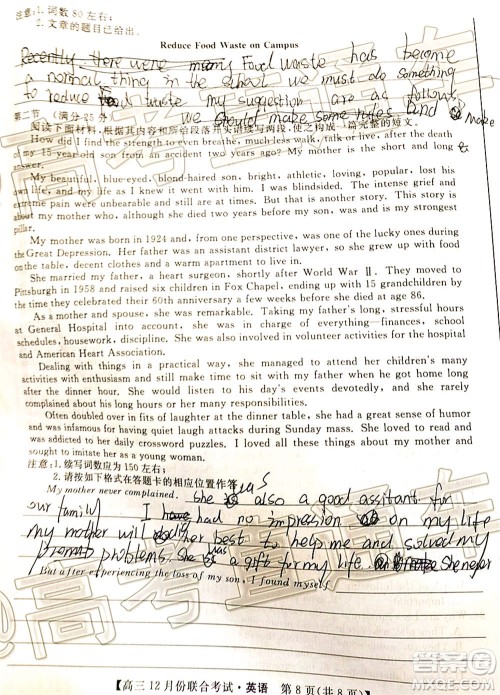 注意:1.词数80左右;
2.文章的题目已给出。
Reduce Food Waste on Campus
Recently, there were many Food waste has become
a normal thing in the school we must do something
to reduce food waste my suggestion are as follow,
we should make some rules and make
第二节 (满分25分)
阅读下面材料,根据其内容和所给段落开头语续写两段,使之构成一篇完整的短文。
How did I find the strength to even breathe, much less walk, talk or live, after the death
of my 15-year-old son from an accident two years ago? My mother is the short and long
answer.
My beautiful, blue-eyed, blond-haired son, bright, athletic, loving, popular, lost his
own life, and my life as I knew it went with him. I was blindsided. The intense grief and
extreme pain were unbearable and still are at times. But that is another story. This story is
about my mother who, although she died two years before my son, was and is my strongest
pillar.
My mother was born in 1924 and, from one perspective, was one of the lucky ones during
the Great Depression. Her father was an assistant district lawyer, so she grew up with food
on the table, decent clothes and a warm apartment to live in.
She married my father, a heart surgeon, shortly after World War Ⅱ. They moved to
Pittsburgh in 1958 and raised six children in Fox Chapel, ending up with 15 grandchildren by
the time they celebrated their 60th anniversary a few weeks before she died at age 86.
As a mother and spouse, she was remarkable. Taking my father's long, stressful hours
at General Hospital into account, she was in charge of everything—finances, school
schedules, housework, discipline. She was also involved in volunteer activities for the hospital
and American Heart Association.
Dealing with things in a practical way, she managed to attend her children's many
activities with enthusiasm and still make time to sit with my father when he got home long
after the dinner hour. She would listen to his day's events devotedly, and she rarely
complained about his long hours or her many responsibilities.
Often doubled over in fits of laughter at the dinner table, she had a great sense of humor
and was infamous for having quiet laugh attacks during Sunday mass. She loved to read and
was addicted to her daily crossword puzzles. I loved all these things about my mother and
sought to imitate her as a young woman.
注意:1.续写词数应为150左右;
2.请按如下格式在答题卡的相应位置作答。
My mother never complained. she was also a good assitant for
our family I have had no impression on my life
my mother will her best to help me and solved my
problems. She was a gift for my life. She never
But after experiencing the loss of my son, I found myself
【高三12月份联合考试·英语 第8页(共8页)】
高考直通车